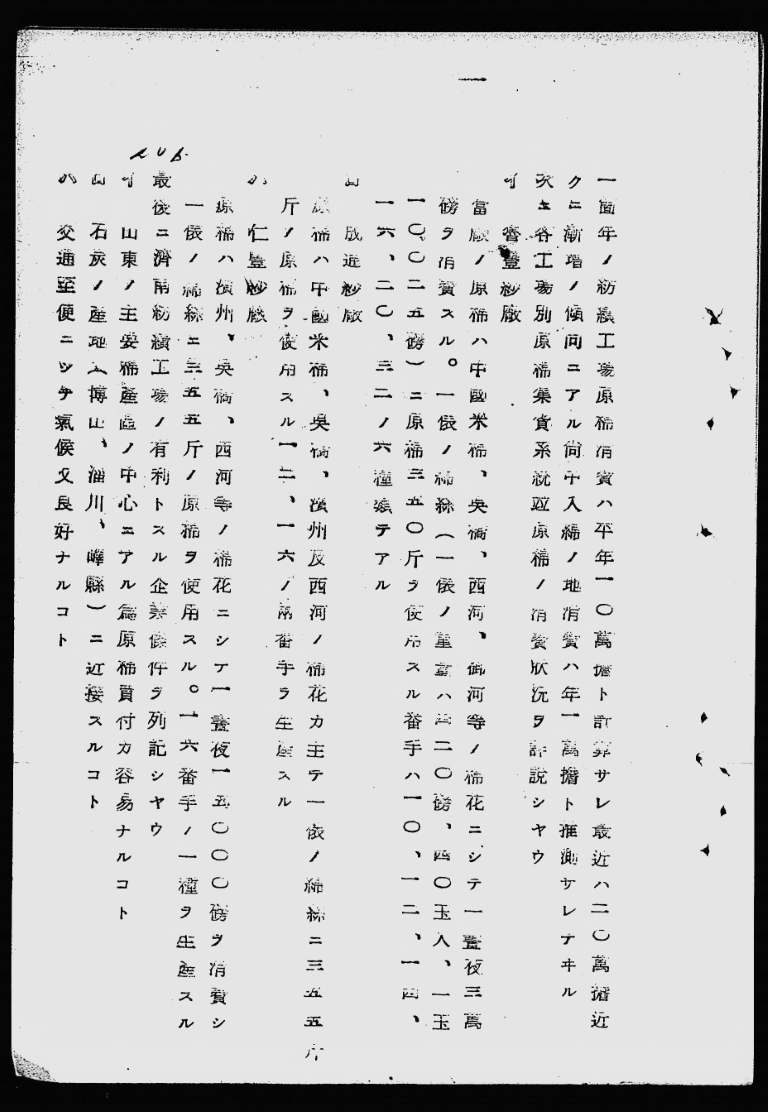 一箇年ノ紡績工場原棉消費ハ平年一〇萬擔ト計算サレ最近ハ二〇萬擔近
クニ漸増ノ傾向ニアル尚中入綿ノ地消費ハ年一萬擔ト推測サレテヰル
次ニ各工場別原棉集貨系統竝原棉ノ消費狀況ヲ詳説シヤウ
イ 魯豐紗廠
當廠ノ原棉ハ中國米棉、吳橋、西河、御河等ノ棉花ニシテ一晝夜三萬
磅ヲ消費スル。一俵ノ綿絲(一俵ノ重量ハ四二〇磅、四〇玉入、一玉
一〇〇二五磅)ニ原棉三五〇斤ヲ使用スル番手ハ一〇、一二、一四、
一六、二〇、三二ノ六種類テアル
ロ 成通紗廠
原棉ハ中國米棉、吳橋、濱州及西河ノ棉花カ主テ一俵ノ綿絲ニ三五五斤
斤ノ原棉ヲ使用スル一二、一六ノ兩番手ヲ生產スル
ハ 仁豐紗廠
原棉ハ濱州、吳橋、西河等ノ棉花ニシテ一晝夜一五〇〇〇磅ヲ消費シ
一俵ノ綿絲ニ三五五斤ノ原棉ヲ使用スル。一六番手ノ一種ヲ生產スル
最後ニ濟南紡績工場ノ有利トスル企業條件ヲ列記シヤウ
イ 山東ノ主要棉產區ノ中心ニアル爲原棉買付カ容易ナルコト
ロ 石炭ノ產地(博山、淄川、嶧縣)ニ近接スルコト
ハ 交通至便ニシテ氣候又良好ナルコト